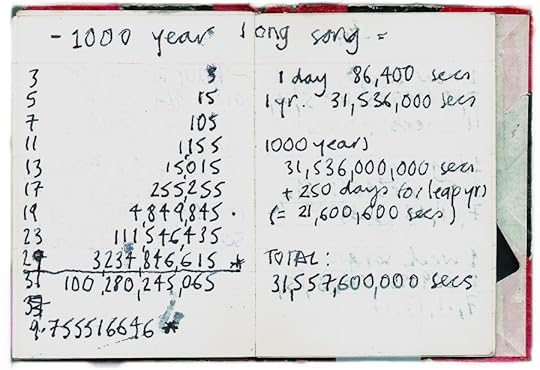 - 1000 year long song =
3 3
5 15
7 105
11 1155
13 15,015
17 255,255
19 4,849,845 .
23 111,546,435
29 3234,846,615 *
31 100,280,245,065
37
9.755516646 *
1 day 86,400 secs
1 yr. 31,536,000 secs
1000 years
31,536,000,000 secs
+ 250 days for leap yrs
(= 21,600,600 secs)
TOTAL:
31,557,600,000 secs